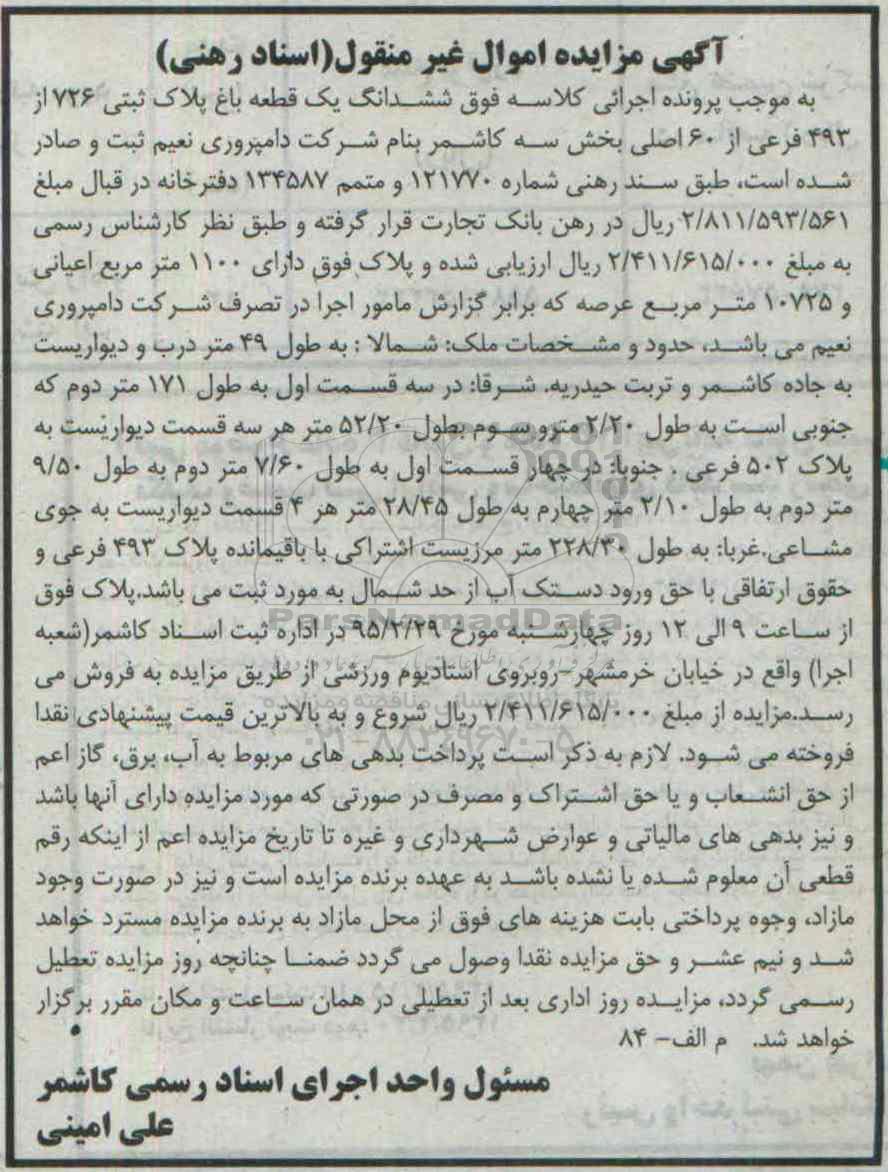 آگهی مزایده اموال غیر منقول(اسناد رهنی)
به موجب پرونده اجرائی کلاسه فوق ششدانگ یک قطعه باغ پلاک ثبتی ۷۲۶ از
۴۹۳ فرعی از ۶۰ اصلی بخش سه کاشمر بنام شرکت دامپروری نعیم ثبت و صادر
شده است، طبق سند رهنی شماره ۱۲۱۷۷۰ و متمم ۱۳۴۵۸۷ دفترخانه در قبال مبلغ
۲/۸۱۱/۵۹۳/۵۶۱ ریال در رهن بانک تجارت قرار گرفته و طبق نظر کارشناس رسمی
به مبلغ ۲/۴۱۱/۶۱۵/۰۰۰ ریال ارزیابی شده و پلاک فوق دارای ۱۱۰۰ متر مربع اعیانی
و ۱۰۷۲۵ متر مربع عرصه که برابر گزارش مامور اجرا در تصرف شرکت دامپروری
نعیم می باشد، حدود و مشخصات ملک: شمالا : به طول ۴۹ متر درب و دیواریست
به جاده کاشمر و تربت حیدریه. شرقا: در سه قسمت اول به طول ۱۷۱ متر دوم که
جنوبی است به طول ۲/۲۰ مترو سوم بطول ۵۲/۲۰ متر هر سه قسمت دیواریست به
پلاک ۵۰۲ فرعی . جنوبا: در چهار قسمت اول به طول ۷/۶۰ متر دوم به طول ۹/۵۰
متر دوم به طول ۲/۱۰ متر چهارم به طول ۲۸/۴۵ متر هر ۴ قسمت دیواریست به جوی
مشاعی.غربا: به طول ۲۲۸/۳۰ متر مرزیست اشتراکی با باقیمانده پلاک ۴۹۳ فرعی و
حقوق ارتفاقی با حق ورود دستک آب از حد شمال به مورد ثبت می باشد.پلاک فوق
از ساعت ۹ الی ۱۲ روز چهارشنبه مورخ ۹۵/۲/۲۹ در اداره ثبت اسناد کاشمر(شعبه
اجرا) واقع در خیابان خرمشهر-روبروی استادیوم ورزشی از طریق مزایده به فروش می
رسد.مزایده از مبلغ ۲/۴۱۱/۶۱۵/۰۰۰ ریال شروع و به بالاترین قیمت پیشنهادی نقدا
فروخته می شود. لازم به ذکر است پرداخت بدهی های مربوط به آب، برق، گاز اعم
از حق انشعاب و یا حق اشتراک و مصرف در صورتی که مورد مزایده دارای آنها باشد
و نیز بدهی های مالیاتی و عوارض شهرداری و غیره تا تاریخ مزایده اعم از اینکه رقم
قطعی آن معلوم شده یا نشده باشد به عهده برنده مزایده است و نیز در صورت وجود
مازاد، وجوه پرداختی بابت هزینه های فوق از محل مازاد به برنده مزایده مسترد خواهد
شد و نیم عشر و حق مزایده نقدا وصول می گردد ضمنا چنانچه روز مزایده تعطیل
رسمی گردد، مزایده روز اداری بعد از تعطیلی در همان ساعت و مکان مقرر برگزار
خواهد شد. م الف- ۸۴
مسئول واحد اجرای اسناد رسمی کاشمر
علی امینی
ParsNamadData
۰۲۱-۸۸۳۴۹۶۷۰-۵